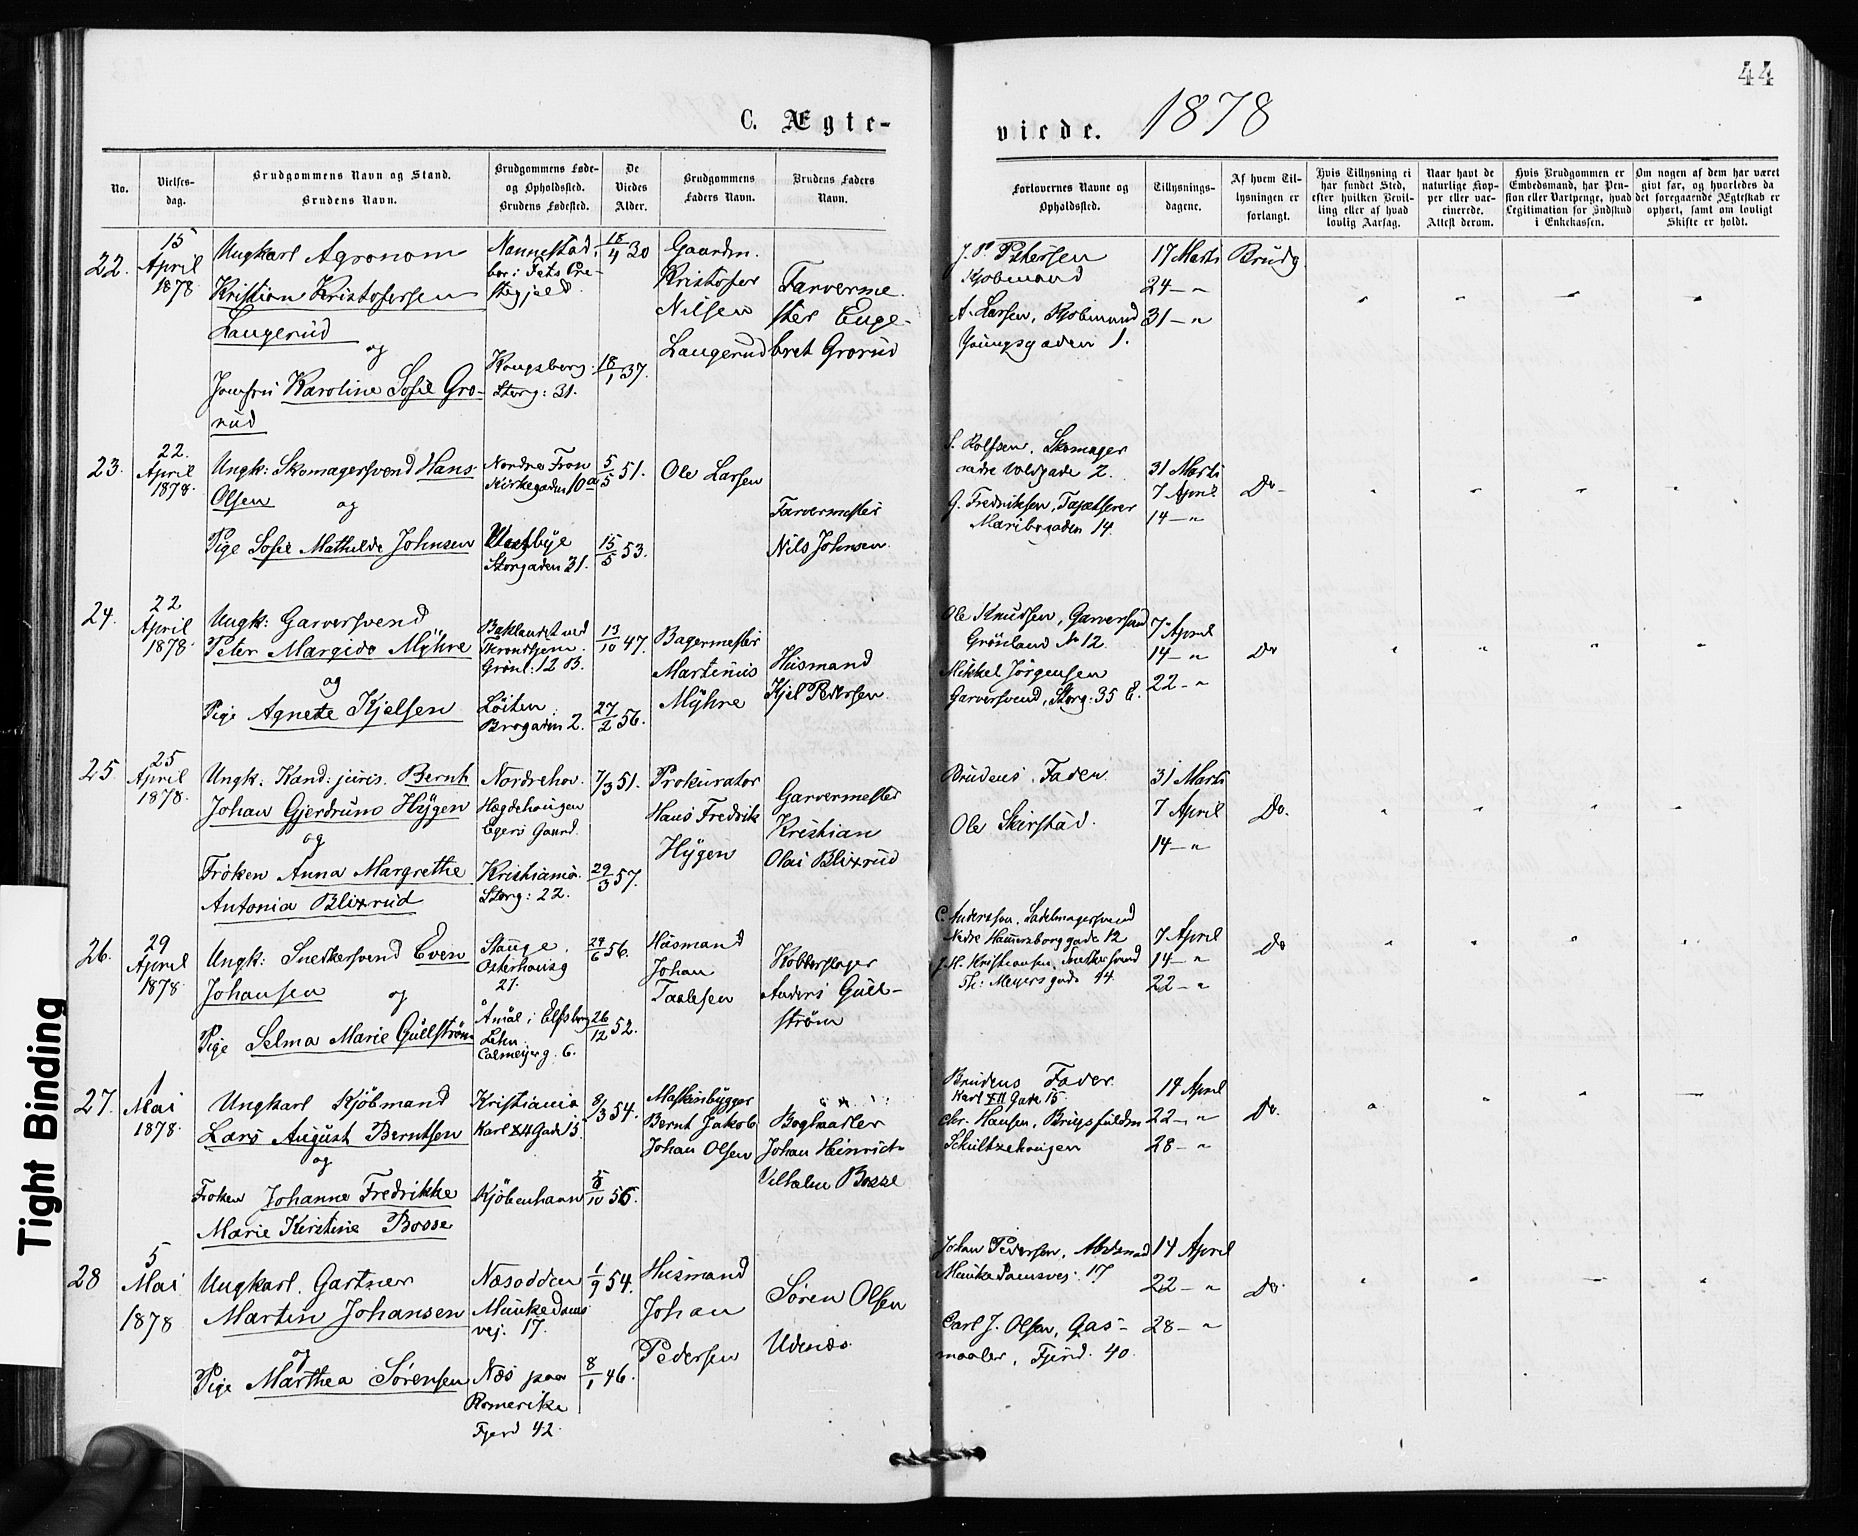 44
C. Ægte-
viede. 1878
No.
Vielses-
dag.
Brudgommens Navn og Stand.
Brudens Navn.
Brudgommens Føde-
og Opholdssted.
Brudens Fødested.
De
Viedes
Alder.
Brudgommens
Faders Navn.
Brudens Faders
Navn.
Forlovernes Navne og
Opholdssted.
Tillysnings-
dagene.
Af hvem Til-
lysningen er
forlangt.
Hvis Tillysning ei
har fundet Sted,
efter hvilken Bevil-
ling eller af hvad
lovlig Aarsag.
Naar havt de
naturlige Kop-
per eller vac-
cinerede.
Attest derom.
Hvis Brudgommen er
Embedsmand, har Pen-
sion eller Vartpenge, hvad
Legitimation for Indskud
i Enkekassen.
Om nogen af dem har været
givt før, og hvorledes da
det foregaaende Ægteskab er
ophørt, samt om lovligt
Skifte er holdt.
22.
15
April
1878
Ungkarl Agronom
Kristian Kristofersen
Laugerud
og
Jomfru Karoline Sofie Gro-
rud
Nannestad,
bor i Fets Præ-
stegjeld.
Kongsberg.
Storg: 31.
18/4 30
18/1 37.
Gaardm.
Kristofer
Nilsen
Laugerud
Farverme-
ster Enge-
bret Grorud
J. P. Petersen
Kjøbmand
A. Larsen, Kjøbmand
Youngsgaden 1.
17 Marts
24 – "
31 – "
Brudg
23.
22.
April
1878.
Ungk: Skomagersvend Hans
Olsen
og
Pige Sofie Mathilde Johnsen
Nordre Fron
Kirkegaden 10a
Vestbye
Storgaden 31.
5/5 51.
15/5 53.
Ole Larsen
Farvermester
Nils Johnsen.
S. Rolfsen, Skomager
nedre Voldgade 2.
G. Fredriksen, Tapetserer
Maribogaden 14.
31 Marts
7 April
14 – "
Do
24.
22
April
1878.
Ungk: Garversvend
Peter Margido Myhre
og
Pige Agnete Kjelsen
Baklandet ved
Trondhjem.
Grønl: 12 B.
Løiten
Brogaden 2.
13/10 47.
27/2 56.
Bagermester
Martinus
Myhre
Husmand
Kjel Pedersen.
Ole Knudsen, Garversvend
Grönland No 12.
Mikkel Jörgensen
Garversvend, Storg: 35 E.
7 April
14 – "
22 – "
Do
25.
25
April
1878.
Ungk. Kand: juris. Bernt
Johan Gjerdrum Hygen
og
Frøken Anna Margrethe
Antonia Blixrud
Nordrehov.
Hægdehaugen
Egers Gaard.
Kristiania.
Storg: 22.
7/3 51.
29/3 57.
Prokurator
Hans Fredrik
Hygen
Garvermester
Kristian
Olai Blixrud
Brudens Fader
Ole Skirstad.
31 Marts
7 April
14 – "
Do.
26.
29
April
1878.
Ungk: Snedkersvend Even
Johansen
og
Pige Selma Marie Gullström
Stange.
Osterhausg
27.
Åmål i Elfsborg
Lehn.
Calmeyerg. 6.
24/6 56.
26/12 52.
Husmand
Johan
Taalesen
Kobberslager
Anders Gull-
ström
C. Andersson, Sadelmagersvend
Nedre Hammersborggade 12
J. H. Kristiansen, Snedkersvend
Th: Meyers gade 44.
7 April
14 – "
22 – "
Do
27.
1
Mai
1878.
Ungkarl Kjöbmand
Lars August Berntsen
og
Frøken Johanne Fredrikke
Marie Kirstine Bosse
Kristiania
Karl XII Gade 15.
Kjöbenhavn
8/3 54.
5/10 56.
Maskinbygger
Bernt Jakob
Johan Olsen
Boghandler
Johan Heinrich
Vilhelm Bosse
Brudens Fader.
Karl XII Gade 15.
Chr. Hansen, Brugsfuldm
Schultzehaugen
14 April
22 – "
28 – "
Do.
28
5
Mai
1878
Ungkarl. Gartner
Martin Johansen
og
Pige Marthea Sörensen
Næsodden
Munkedams
vej. 17.
Næs paa
Romerike
Fjerd 42.
1/9 54.
8/1 46.
Husmand
Johan
Pedersen
Søren Olsen
Udenæs.
Johan Pedersen,
Munkedamsvej. 17
Carl J. Olsen, Gas-
maaler, Fjerd. 40.
14 April
22 – "
28 – "
Do.
Tight Binding